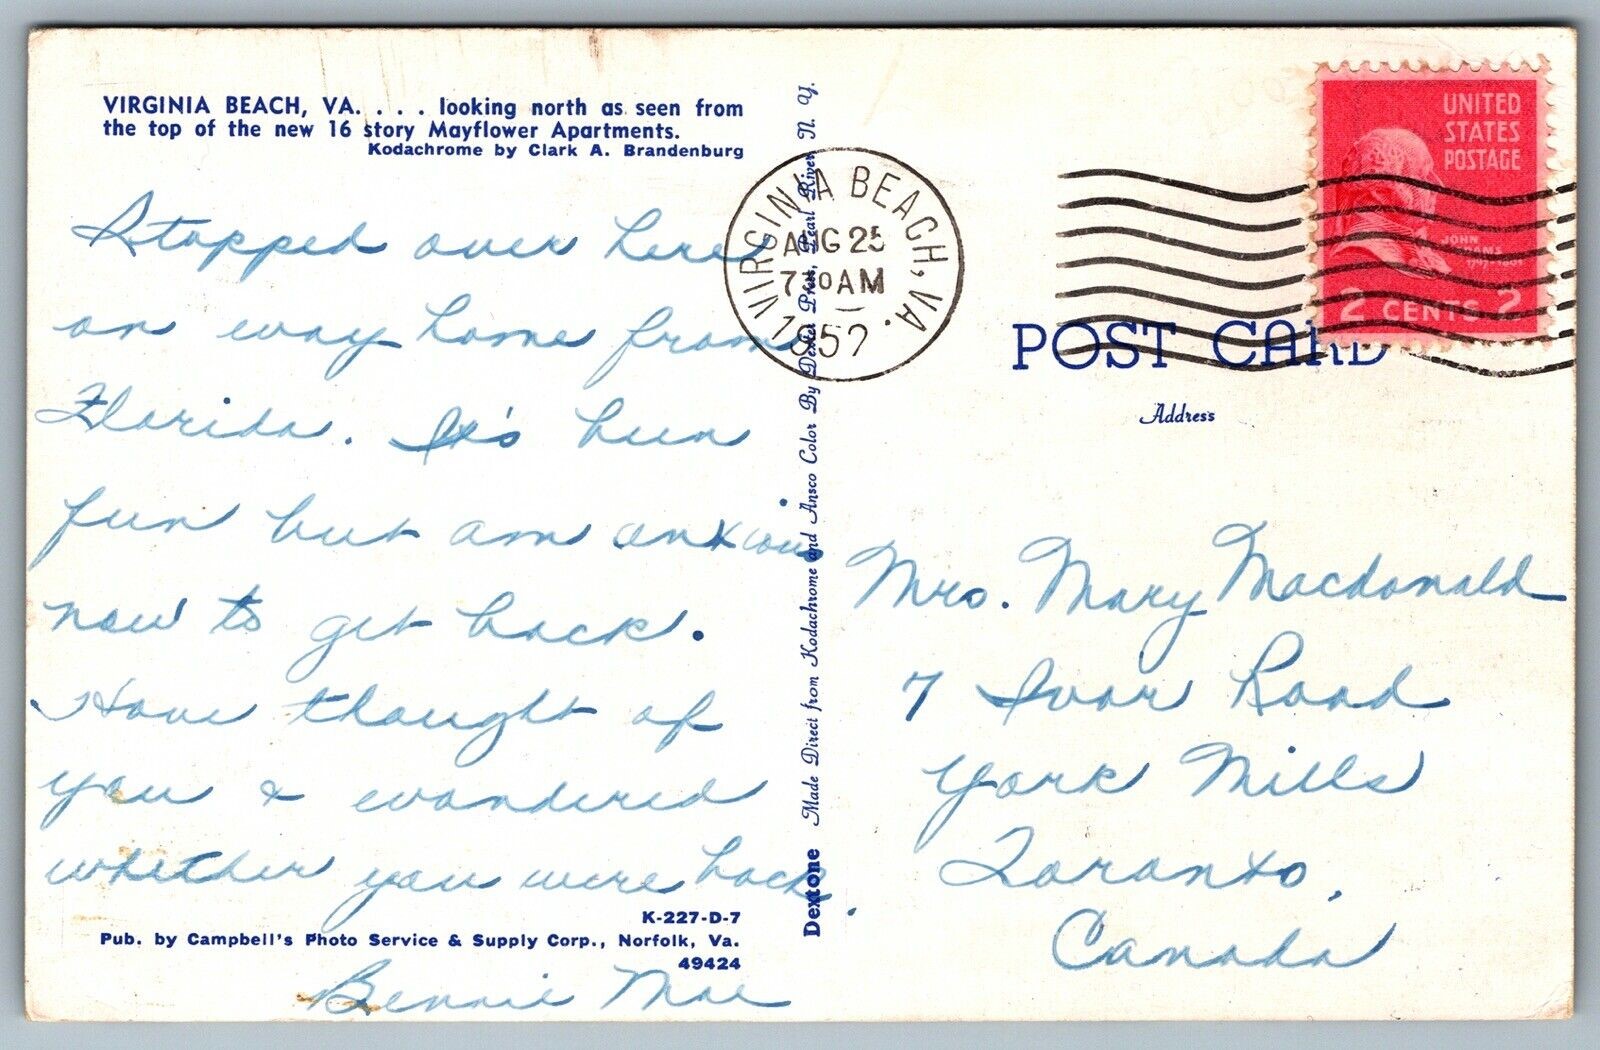 VIRGINIA BEACH, VA. . . . looking north as seen from
the top of the new 16 story Mayflower Apartments.
Kodachrome by Clark A. Brandenburg
Stopped over here
on way home from
Florida. It's bun
fun but am anxious
now to get back.
Have thought of
you & wondered
whether you were back.
Bennie Mae
K-227-D-7
Pub. by Campbell's Photo Service & Supply Corp., Norfolk, Va.
49424
Dextone Made Direct from Kodachrome and Ansco Color By Dexter Press, Pearl River, N. Y.
VIRGINIA BEACH, VA.
AUG 25
730 AM
1952
UNITED
STATES
POSTAGE
JOHN
ADAMS
2 CENTS 2
POST CARD
Address
Mrs. Mary Macdonald
7 Ivor Road
York Mills
Toronto,
Canada